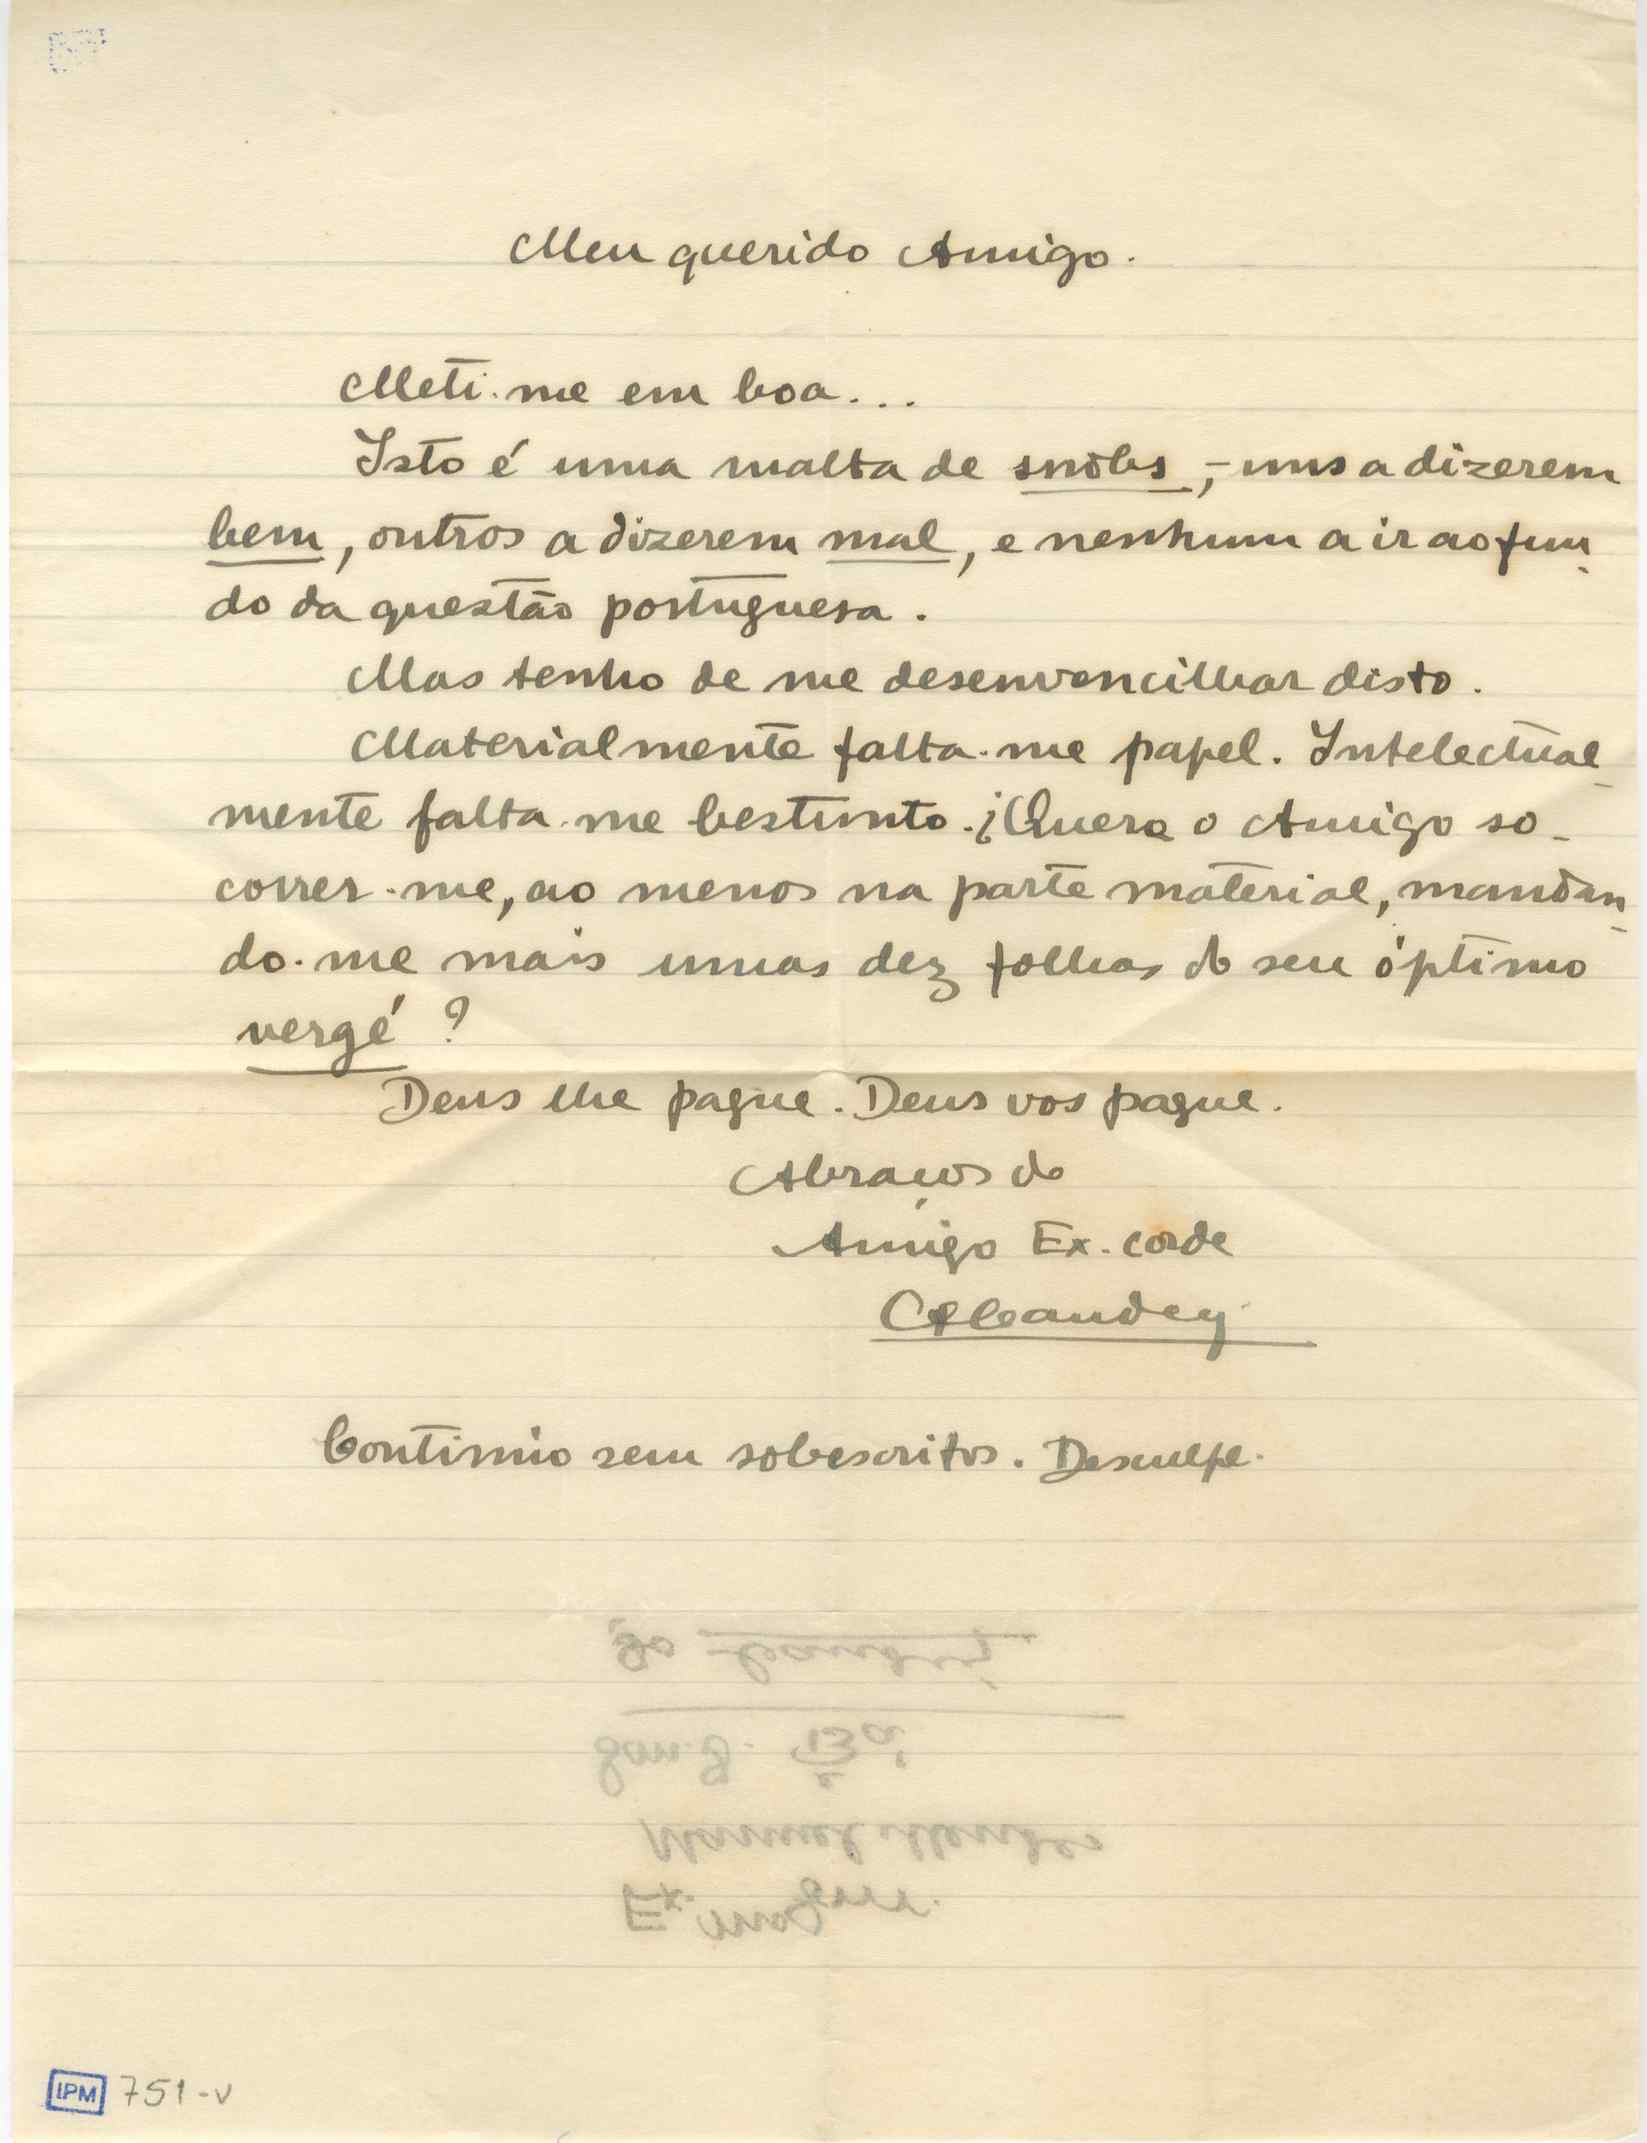 Meu querido Amigo.
Meti-me em boa...
Isto é uma malta de snobs, - uns a dizerem
bem, outros a dizerem mal, e nenhum a ir ao fun-
do da questão portuguesa.
Mas tenho de me desenvencilhar disto.
Materialmente falta-me papel. Intelectual-
mente falta-me bestunto. ¿Quere o Amigo so-
correr-me, ao menos na parte material, mandan-
do-me mais umas dez folhas do seu óptimo
vergé?
Deus lhe pague. Deus vos pague.
Abraços do
Amigo Ex-corde
Continúo sem sobescritos. Desculpe.
do
Manuel Mendes
Ex.
IPM 751-v